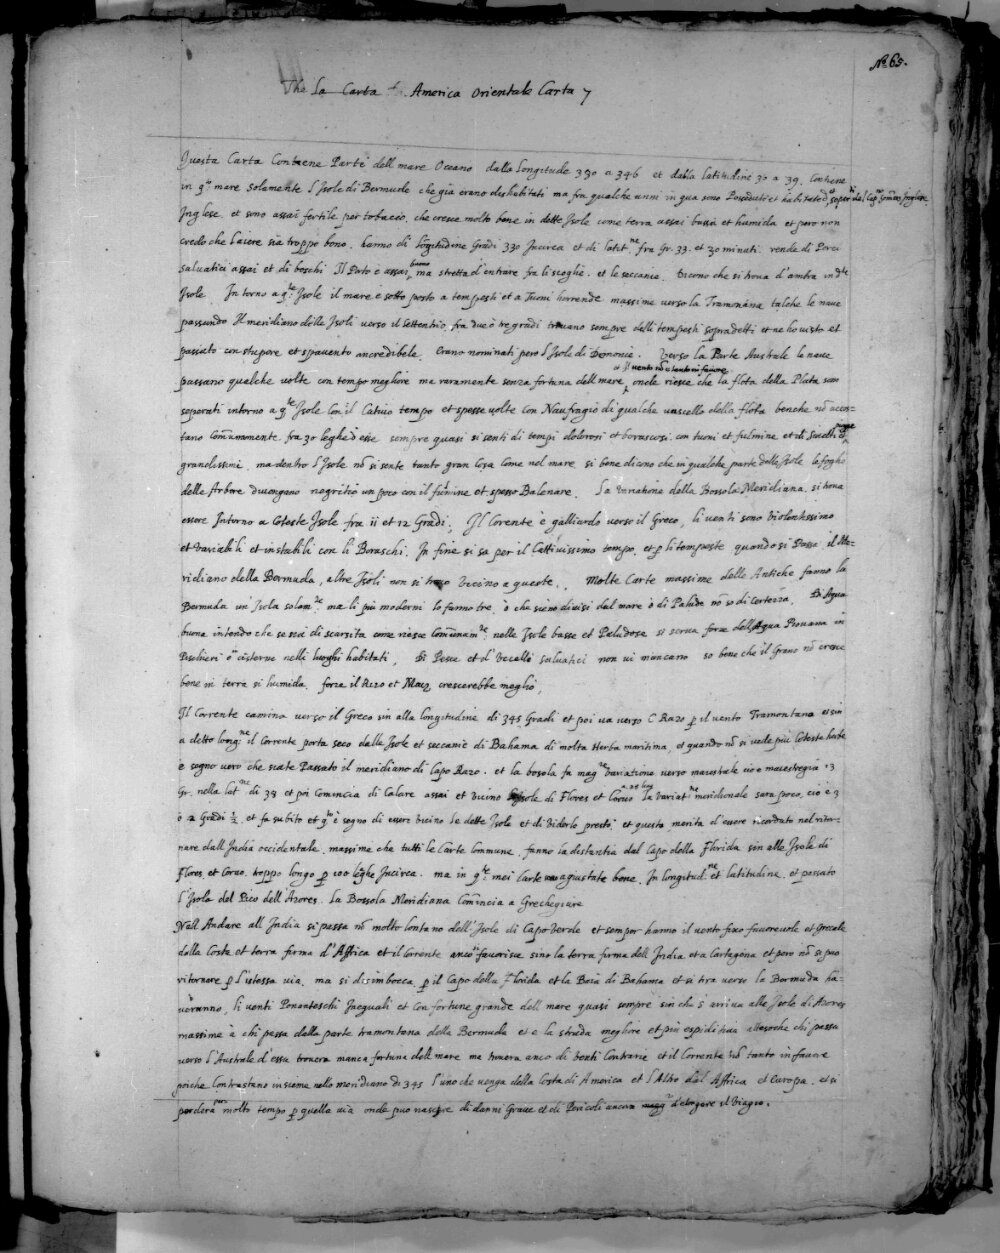 No. 65.
La Carta America Orientale Carta 7
Questa Carta Contiene Parte dell mare Oceano dalla Longitude 330 a 346 et dalla Latitudine 30 a 39. Contiene
in qto mare solamente l'Isole di Bermude che gia erano deshabitati ma fra qualche anni in qua sono Posseduti et habitato
Inglese, et sono assai fertile per tobacio, che cresce molto bene in dette Isole come terra assai bassa et humida et pero non
credo che l'aiere sia troppo bono. hanno di Longitudine Gradi 330 Incirca et di latitne fra Gr. 33. et 30 minuti. rende di Porci
salvatici assai et di boschi Il Porto è assai buono ma stretta d'entrare fra li scoglie. et le seccanie. Dicono che si trova d'ambra in dte
Isole. Intorno a qte Isole il mare è sotto posto a tempesti et a Tuoni horrende massime verso la Tramontana talche le nave
passando Il meridiano delle Isoli verso il settentrio, fra due ò tre gradi trovano sempre delli tempesti sopradetti et ne ho visto et
passato con stupore et spavento incredibele. erano nominati pero l'Isole di Demonie. Verso la Parte Australe le nave
passano qualche volte con tempo megliore ma raramente senza fortuna dell mare, onde riesce che la flota della Plata sono
et il vento nō è tanto in favore
separati intorno a qte Isole con il Cativo tempo et spesse volte con Naufragio di qualche vascello della flota benche nō acos-
tano Comūnamente fra 30 leghe d'esse sempre quasi si senti di tempi dolorosi et borascosi con tuoni et fulmine et di saietti et piogge
grandissimi, ma dentro l'Isole nō si sente tanto gran cosa come nel mare si bene dicono che in qualche parte delle Isole le foglie
delle Arbore divengano negritio un poco con il fulmine et spesso Balenare. La variatione della Bossola Meridiana si trova
essere Intorno a Coteste Isole fra 11 et 12 Gradi. Il Corrente è galliardo verso il Greco, li venti sono violentissimo
et variabili et instabili con li Boraschi. In fine si sa per il Cattivissimo tempo, et p li tempeste quando si Passa il Me-
ridiano della Bermuda, altre Isoli non si trova vicino a queste. Molte Carte massime delle Antiche fanno la
Bermuda un' Isola solamte ma li più moderni lo fanno tre, ò che sieno divisi dal mare ò di Palude nō so di certezza. Di Aqua
buona intendo che se sia di scarsita come riesce Comūnamte nelle Isole basse et Paludose si serva forze dell Aqua Piovana in
Peschieri ò cisterne nelli luoghi habitati, Di Pesce et d'Vccelli salvatici non vi mancano so bene che il Grano nō cresce
bene in terra si humida. forze il Rizo et Maiz crescerebbe meglio,
Il Corrente camina verso il Greco sin alla longitudine di 345 Gradi et poi va verso C. Razo p il vento Tramontana et sin
a detto longne il Corrente porta seco dalle Isole et seccanie di Bahama di molta Herba maritima, et quando nō si vede più Coteste herbe
e segno vero che siate Passato il meridiano di Capo Razo. et la bosola fa magre variatione verso maestrale cio e maestregia 13
Gr. nella latne di 38 et poi Comincia di Calare assai et vicino Isole di Flores et Corvo la variatne meridionale sara poco, cio è 3
ò 2 Gradi ½ et fa subito et qto è segno di essere vicino le dette Isole et di Viderle presto, et questo merita d'essere ricordato nel ritor-
nare dall'India occidentale. massime che tutti le Carte Commune, fanno la destantia dal Capo della Florida sin alle Isole di
Flores, et Corvo. troppo longo p 100 leghe Incirca. ma in qte mei Carte agiustate bene. In longitudne et latitudine, et passato
l'Isola del Pico dell'Azores. la Bossola Meridiana Comincia a Grechegiare
Nell Andare all India si passa nō molto lontano dell' Isole di Capo Verde et semper hanno il vento fixo favorevole et Grecale
dalla Costa et terra firma d'Affrica et il Corrente anco favorisce sino la terra firma dell India et a Cartagena et pero nō si puo
ritornare p l'istessa via. ma si disimbocca p il Capo della Florida et la Baia di Bahama et si tira verso la Bermuda ha-
veranno, li venti Ponanteschi Inequali et Con fortune grande dell mare quasi sempre sin che s' arriva alle Isole di Azores
massime à chi passa dalla parte tramontana della Bermuda et e la strada megliore et più espiditiva allesoche chi passa
verso l'Australe d'essa trovera manca fortuna dell mare ma trovera anco di venti Contrarie et il Corrente nō tanto in favore
poiche Contrastano insieme nello meridiano di 345 l'uno che venga della Costa di America et l'Altro dal Affrica et europa, et si
perdera molto tempo p quella via onde puo nascere di danni Grave et di Pericoli ancora d'alongare il Viagio.